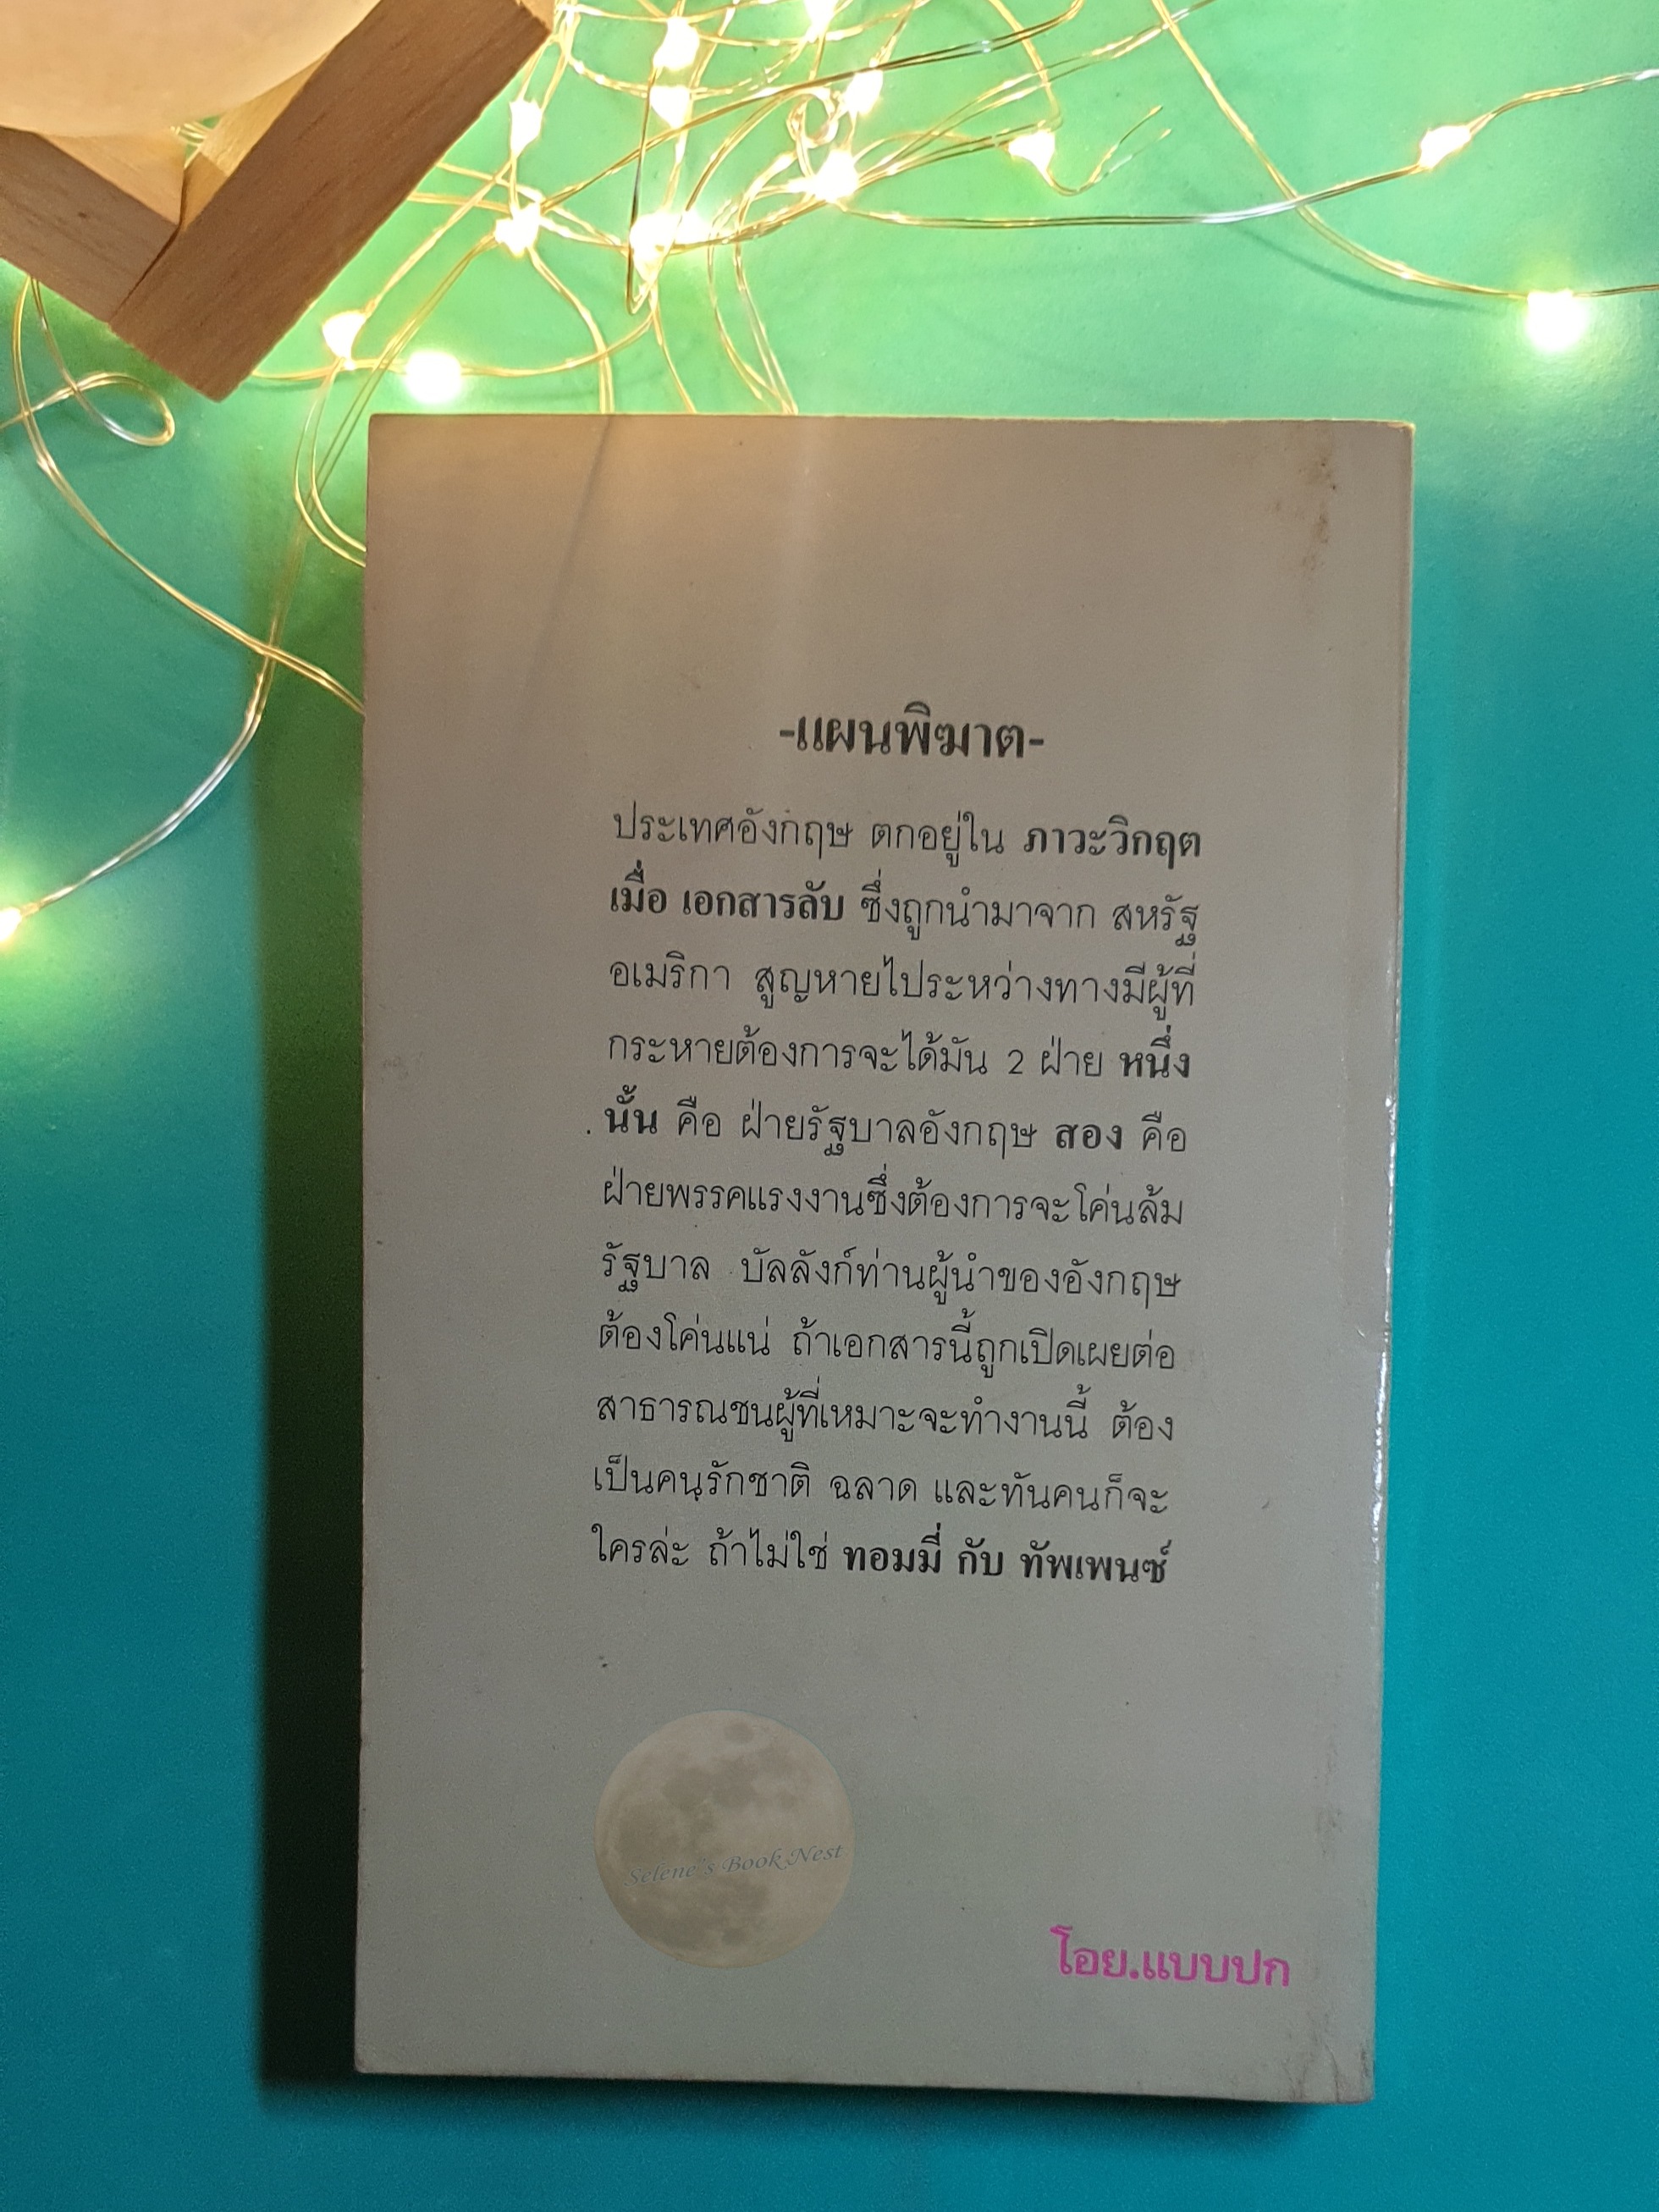 -แผนพิฆาต-
ประเทศอังกฤษ ตกอยู่ใน ภาวะวิกฤต
เมื่อ เอกสารลับ ซึ่งถูกนำมาจาก สหรัฐ
อเมริกา สูญหายไประหว่างทางมีผู้ที่
กระหายต้องการจะได้มัน 2 ฝ่าย หนึ่ง
นั้น คือ ฝ่ายรัฐบาลอังกฤษ สอง คือ
ฝ่ายพรรคแรงงานซึ่งต้องการจะโค่นล้ม
รัฐบาล บัลลังก์ท่านผู้นำของอังกฤษ
ต้องโค่นแน่ ถ้าเอกสารนี้ถูกเปิดเผยต่อ
สาธารณชนผู้ที่เหมาะจะทำงานนี้ ต้อง
เป็นคนรักชาติ ฉลาด และทันคนก็จะ
ใครล่ะ ถ้าไม่ใช่ ทอมมี่ กับ ทัพเพนซ์
Selene's Book Nest
โอย.แบบปก